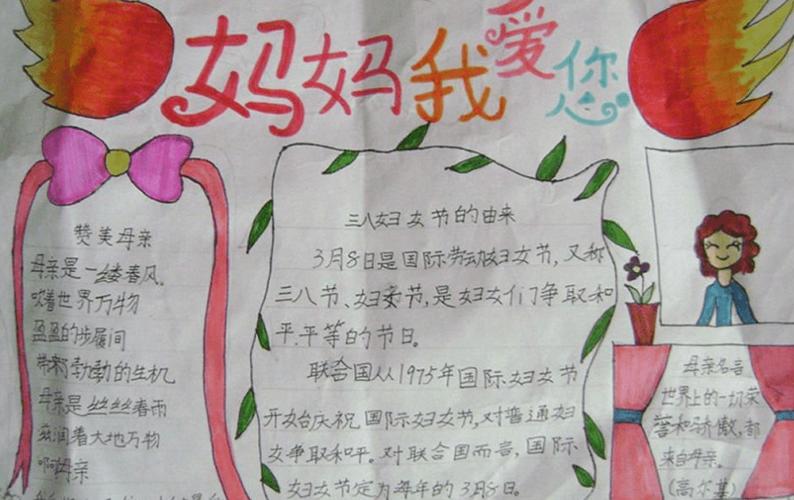 妈妈我爱您
赞美母亲
母亲是一缕春风。
吹着世界万物
盈盈的步履间
带来勃勃的生机
母亲是丝丝春雨
滋润着大地万物
啊母亲
三八妇女节的由来
3月8日是国际劳动妇女节,又称
三八节、妇女节,是妇女们争取和
平.平等的节日。
联合国从1975年国际妇女节
开始庆祝国际妇女节,对普通妇
女争取和平。对联合国而言,国际
妇女节定为每年的3月8日。
母亲名言
世界上的一切荣
誉和骄傲,都
来自母亲。
(高尔基)